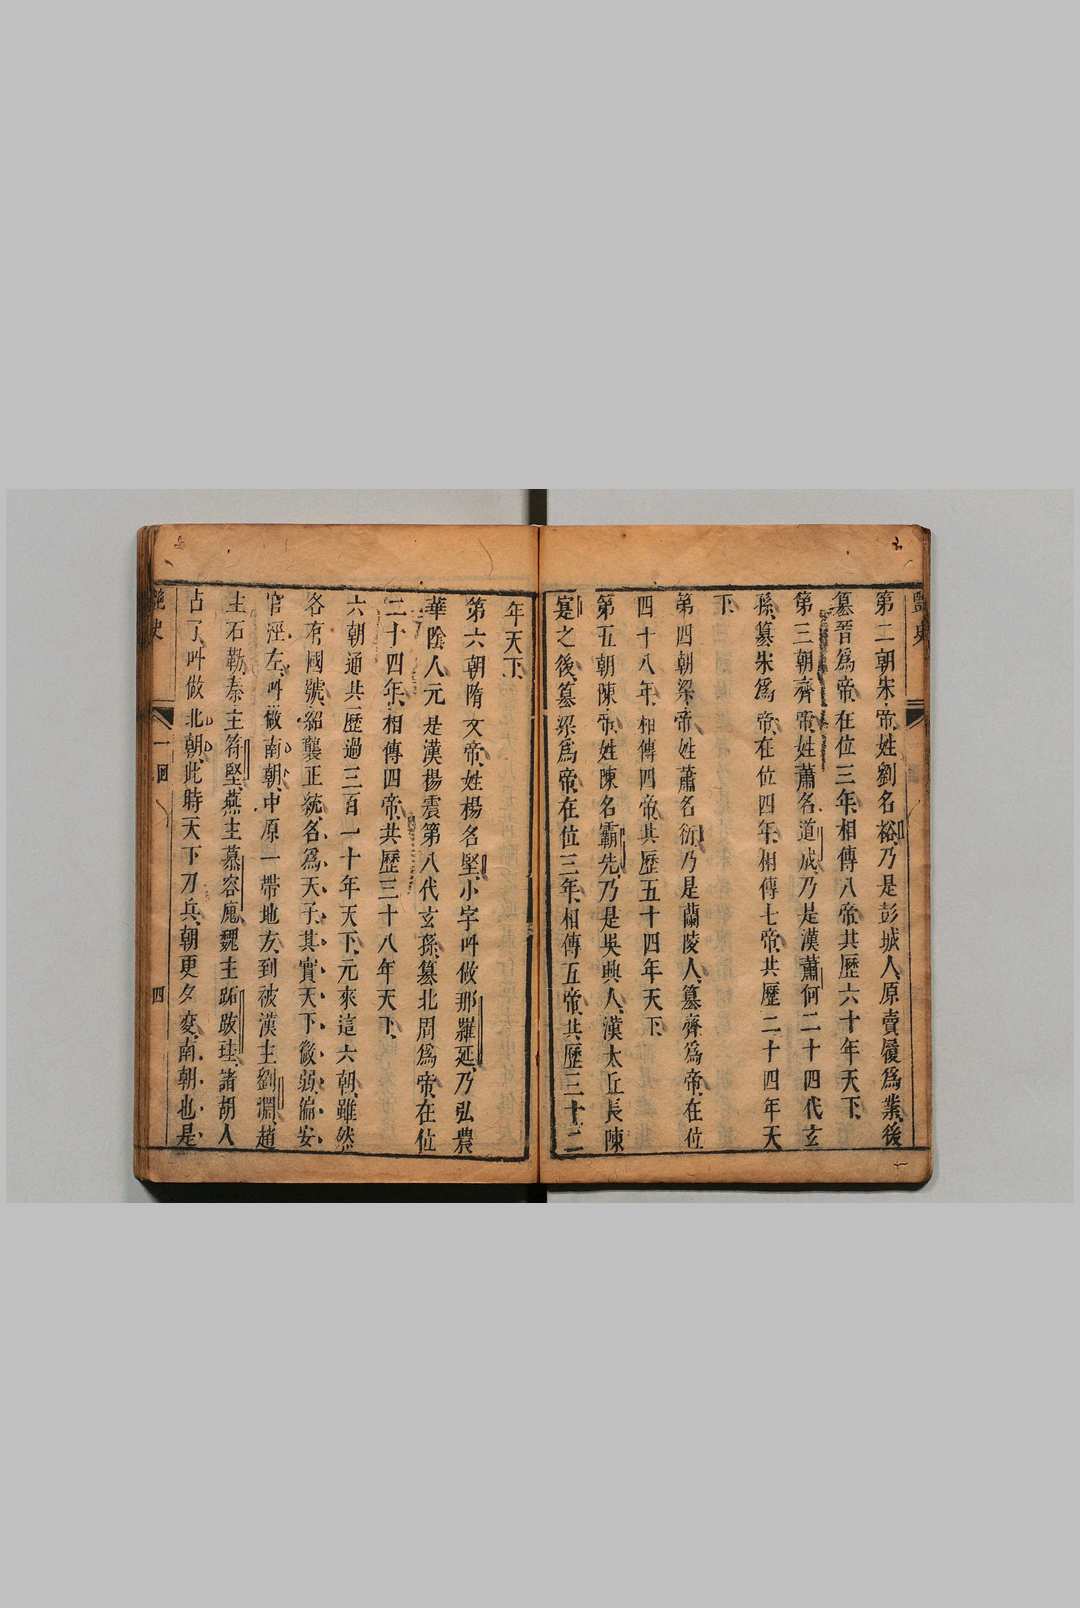 豔史
第二朝宋帝姓劉名裕乃是彭城人原賣履爲業後
篡晉爲帝在位三年相傳八帝共歷六十年天下
第三朝齊帝姓蕭名道成乃是漢蕭何二十四代玄
孫篡宋爲帝在位四年相傳七帝共歷二十四年天
下
第四朝梁帝姓蕭名衍乃是蘭陵人篡齊爲帝在位
四十八年相傳四帝共歷五十四年天下
第五朝陳帝姓陳名霸先乃是吳興人漢太丘長陳
寔之後篡梁爲帝在位三年相傳五帝共歷三十二
年天下
第六朝隋文帝姓楊名堅小字叫做那羅延乃弘農
華陰人元是漢楊震第八代玄孫篡北周爲帝在位
二十四年相傳四帝共歷三十八年天下
六朝通共歷過三百一十年天下元來這六朝雖然
各有國號紹襲正統名爲天子其實天下微弱偏安
官涇左叫做南朝中原一帶地方到被漢主劉淵趙
主石勒秦主符堅燕主慕容廆魏主跖跋珪諸胡人
占了叫做北朝此時天下刀兵朝更夕變南朝也是
艷史
一回
四